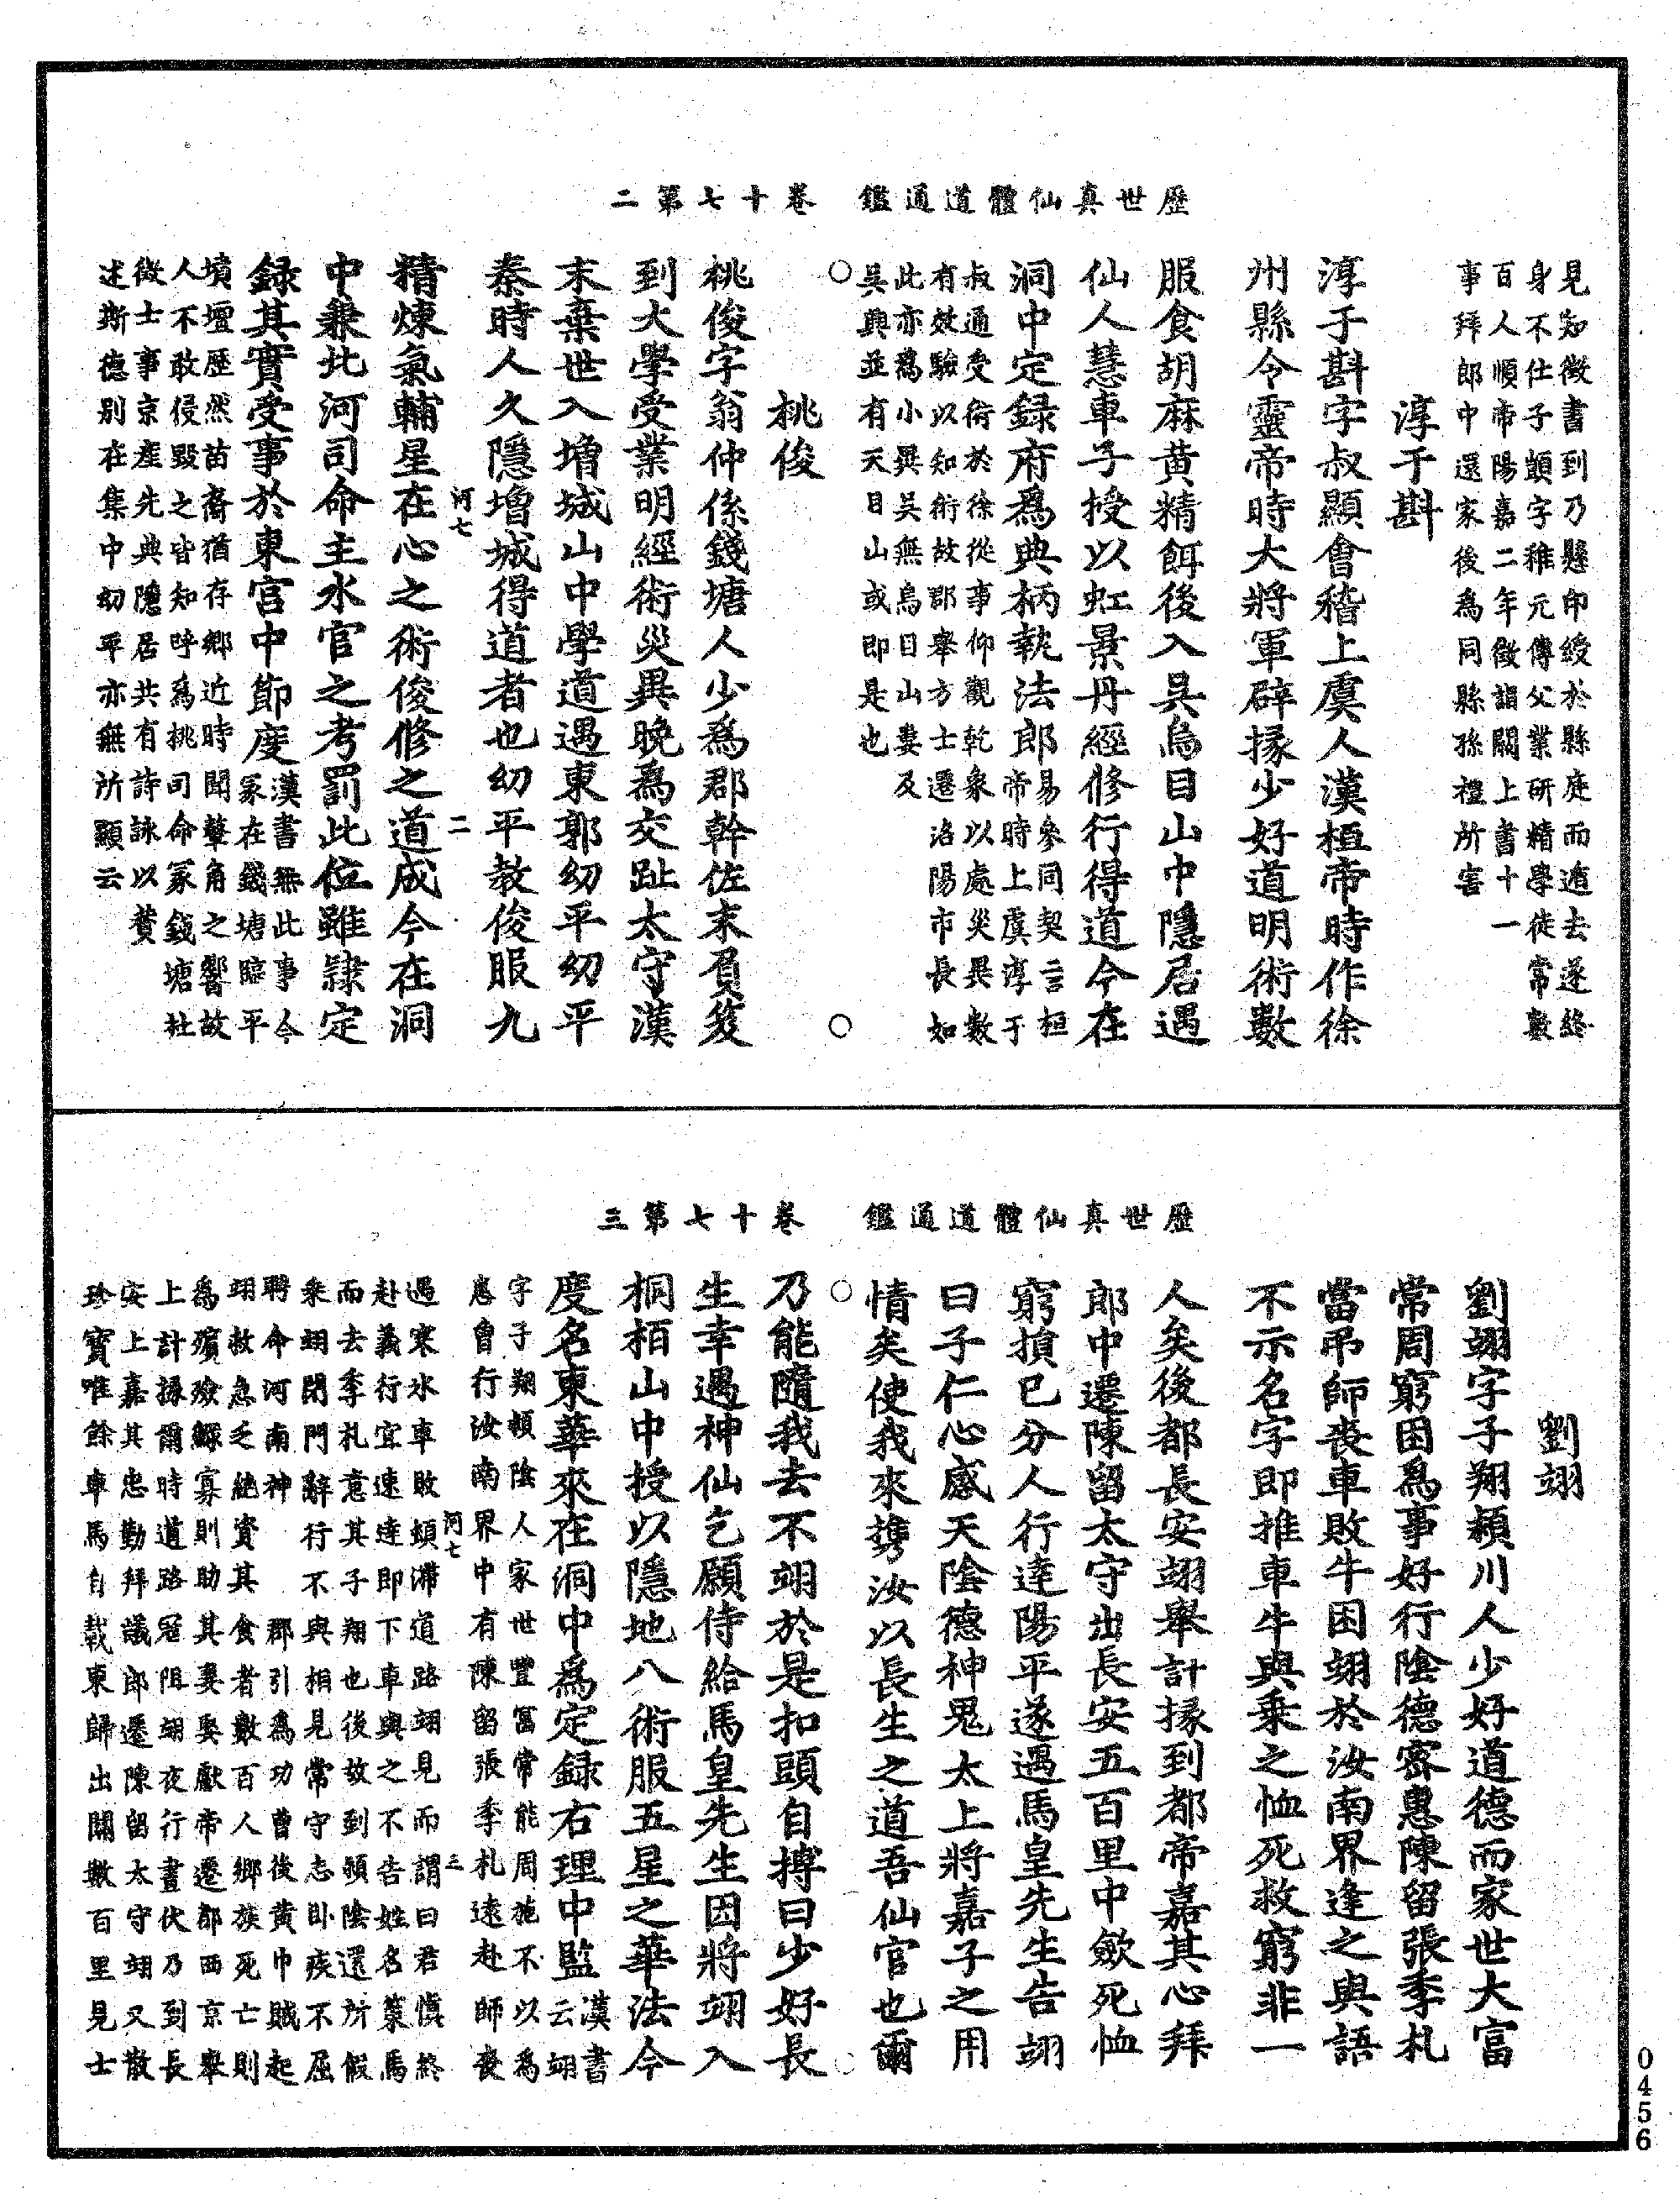 歷世真仙體道通鑑　卷十七第二
見知徵書到乃懸印綬於縣庭而遁去遂終
身不仕子顗字稚元傳父業研精學徒常數
百人順帝陽嘉二年徵詣闕上書十一
事拜郎中還家後為同縣孫禮所害
淳于斟
淳于斟字叔顯會稽上虞人漢桓帝時作徐
州縣令靈帝時大將軍辟掾少好道明術數
服食胡麻黃精餌後入吳烏目山中隱居遇
仙人慧車子授以虹景丹經修行得道今在
洞中定録府為典柄執法郎易參同契云桓
帝時上虞淳于
叔通受術於徐從事仰觀乾象以處災異數
有效驗以知術故郡舉方士遷洛陽市長如
此亦為小異吳無烏目山婁及
吳興並有天目山或即是也
桃俊
桃俊字翁仲係錢塘人少為郡幹佐末負笈
到大學受業明經術災異晚為交趾太守漢
末棄世入増城山中學道遇東郭幼平幼平
秦時人久隱増城得道者也幼平教俊服九
河七　二
精煉氣輔星在心之術俊修之道成今在洞
中兼北河司命主水官之考罰此位雖隷定
録其實受事於東宮中節度漢書無此事今
冢在錢塘臨平
墳壇歷然苗裔猶存鄉近時聞鼙角之響故
人不敢侵毀之皆知呼為桃司命冢錢塘杜
徵士事京產先典隱居共有詩詠以贊
述斯德别在集中幼平亦無所顯云
歷世真仙體道通鑑　卷十七第三
劉翊
劉翊字子翔潁川人少好道德而家世大富
常周窮困為事好行陰德密惠陳留張季札
當吊師喪車敗牛困翊於汝南界逢之與語
不示名字即推車牛與乘之恤死救窮非一
人矣後都長安翊舉計掾到都帝嘉其心拜
郎中遷陳留太守出長安五百里中斂死恤
窮損已分人行達陽平遂遇馬皇先生告翊
曰子仁心感天陰德神鬼太上將嘉子之用
情矣使我來携汝以長生之道吾仙官也爾
乃能隨我去不翊於是扣頭自搏曰少好長
生幸遇神仙乞願侍給馬皇先生因將翊入
桐栢山中授以隱地八術服五星之華法今
度名東華來在洞中為定録右理中監漢書
云翊
字子翔潁陰人家世豐富常能周施不以為
惠曾行汝南界中有陳留張季札遠赴師喪
河七　三
遇寒氷車敗頓滯道路翊見而謂曰君慎終
赴義行宜速達即下車與之不告姓名策馬
而去季札意其子翔也後故到潁陰還所假
乗翊閉門辭行不與相見常守志卧疾不屈
聘命河南神　郡引為功曹後黃巾賊起
翊救急乏絕資其食者數百人鄉族死亡則
為殯殮鰥寡則助其妻娶獻帝遷都西京舉
上計掾爾時道路冦阻翊夜行晝伏乃到長
安上嘉其忠勤拜議郎遷陳留太守翊又散
珍寳唯餘車馬自載東歸出關數百里見士
0456